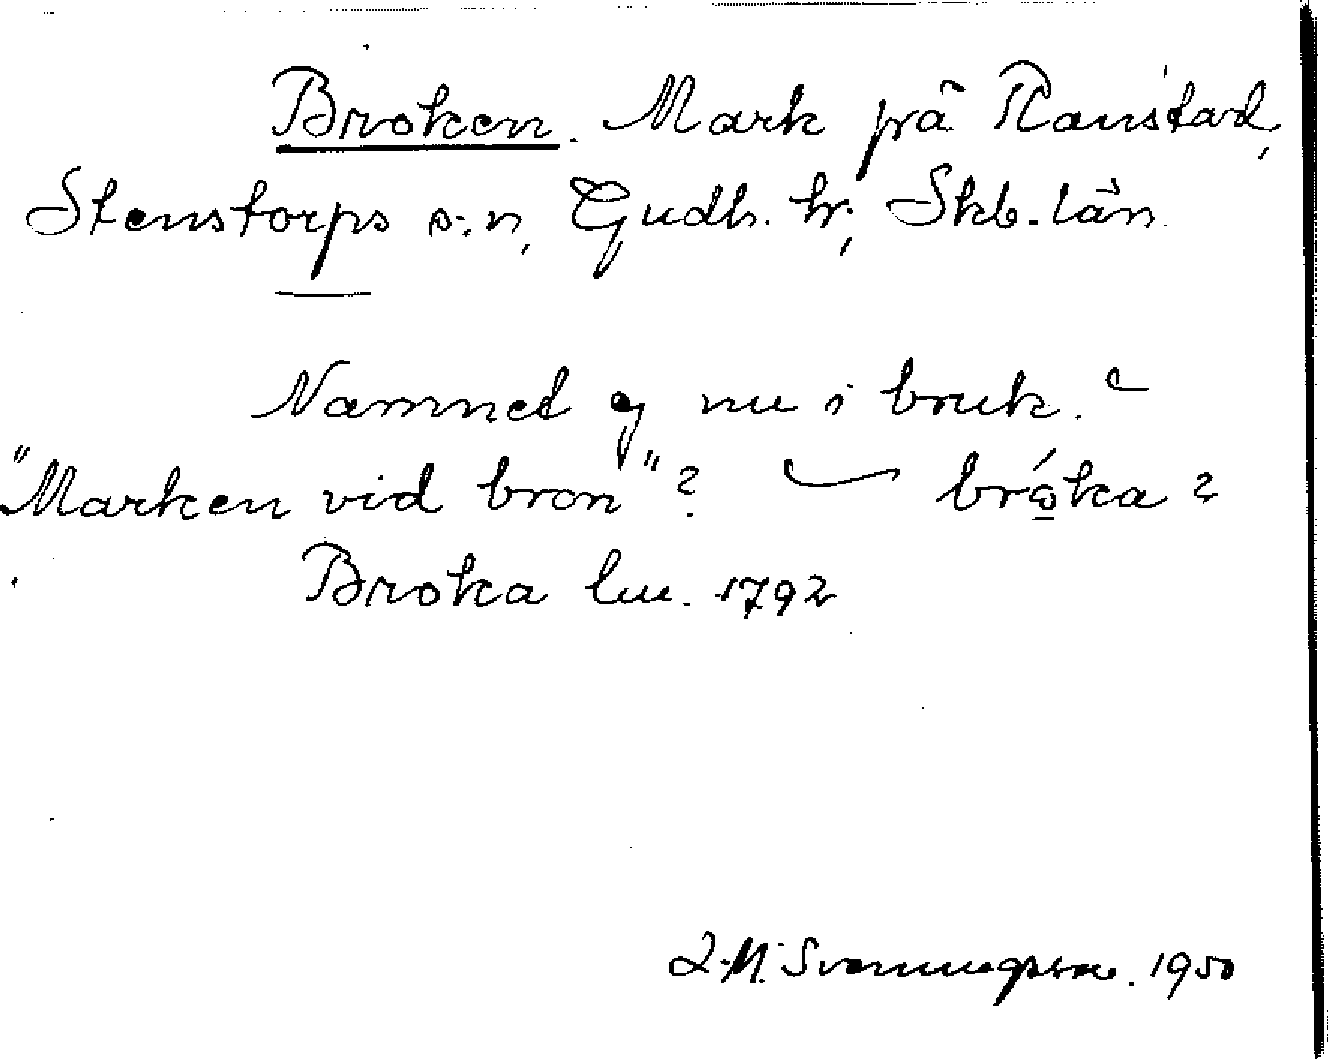 Broken. Mark på Ranstad,
Stenstorps s:n, Gudh. hr, Skb. län.
Namnet ej nu i bruk.
"Marken vid bron"? bróka?
Broka lm. 1792
Svenningsson. 1950